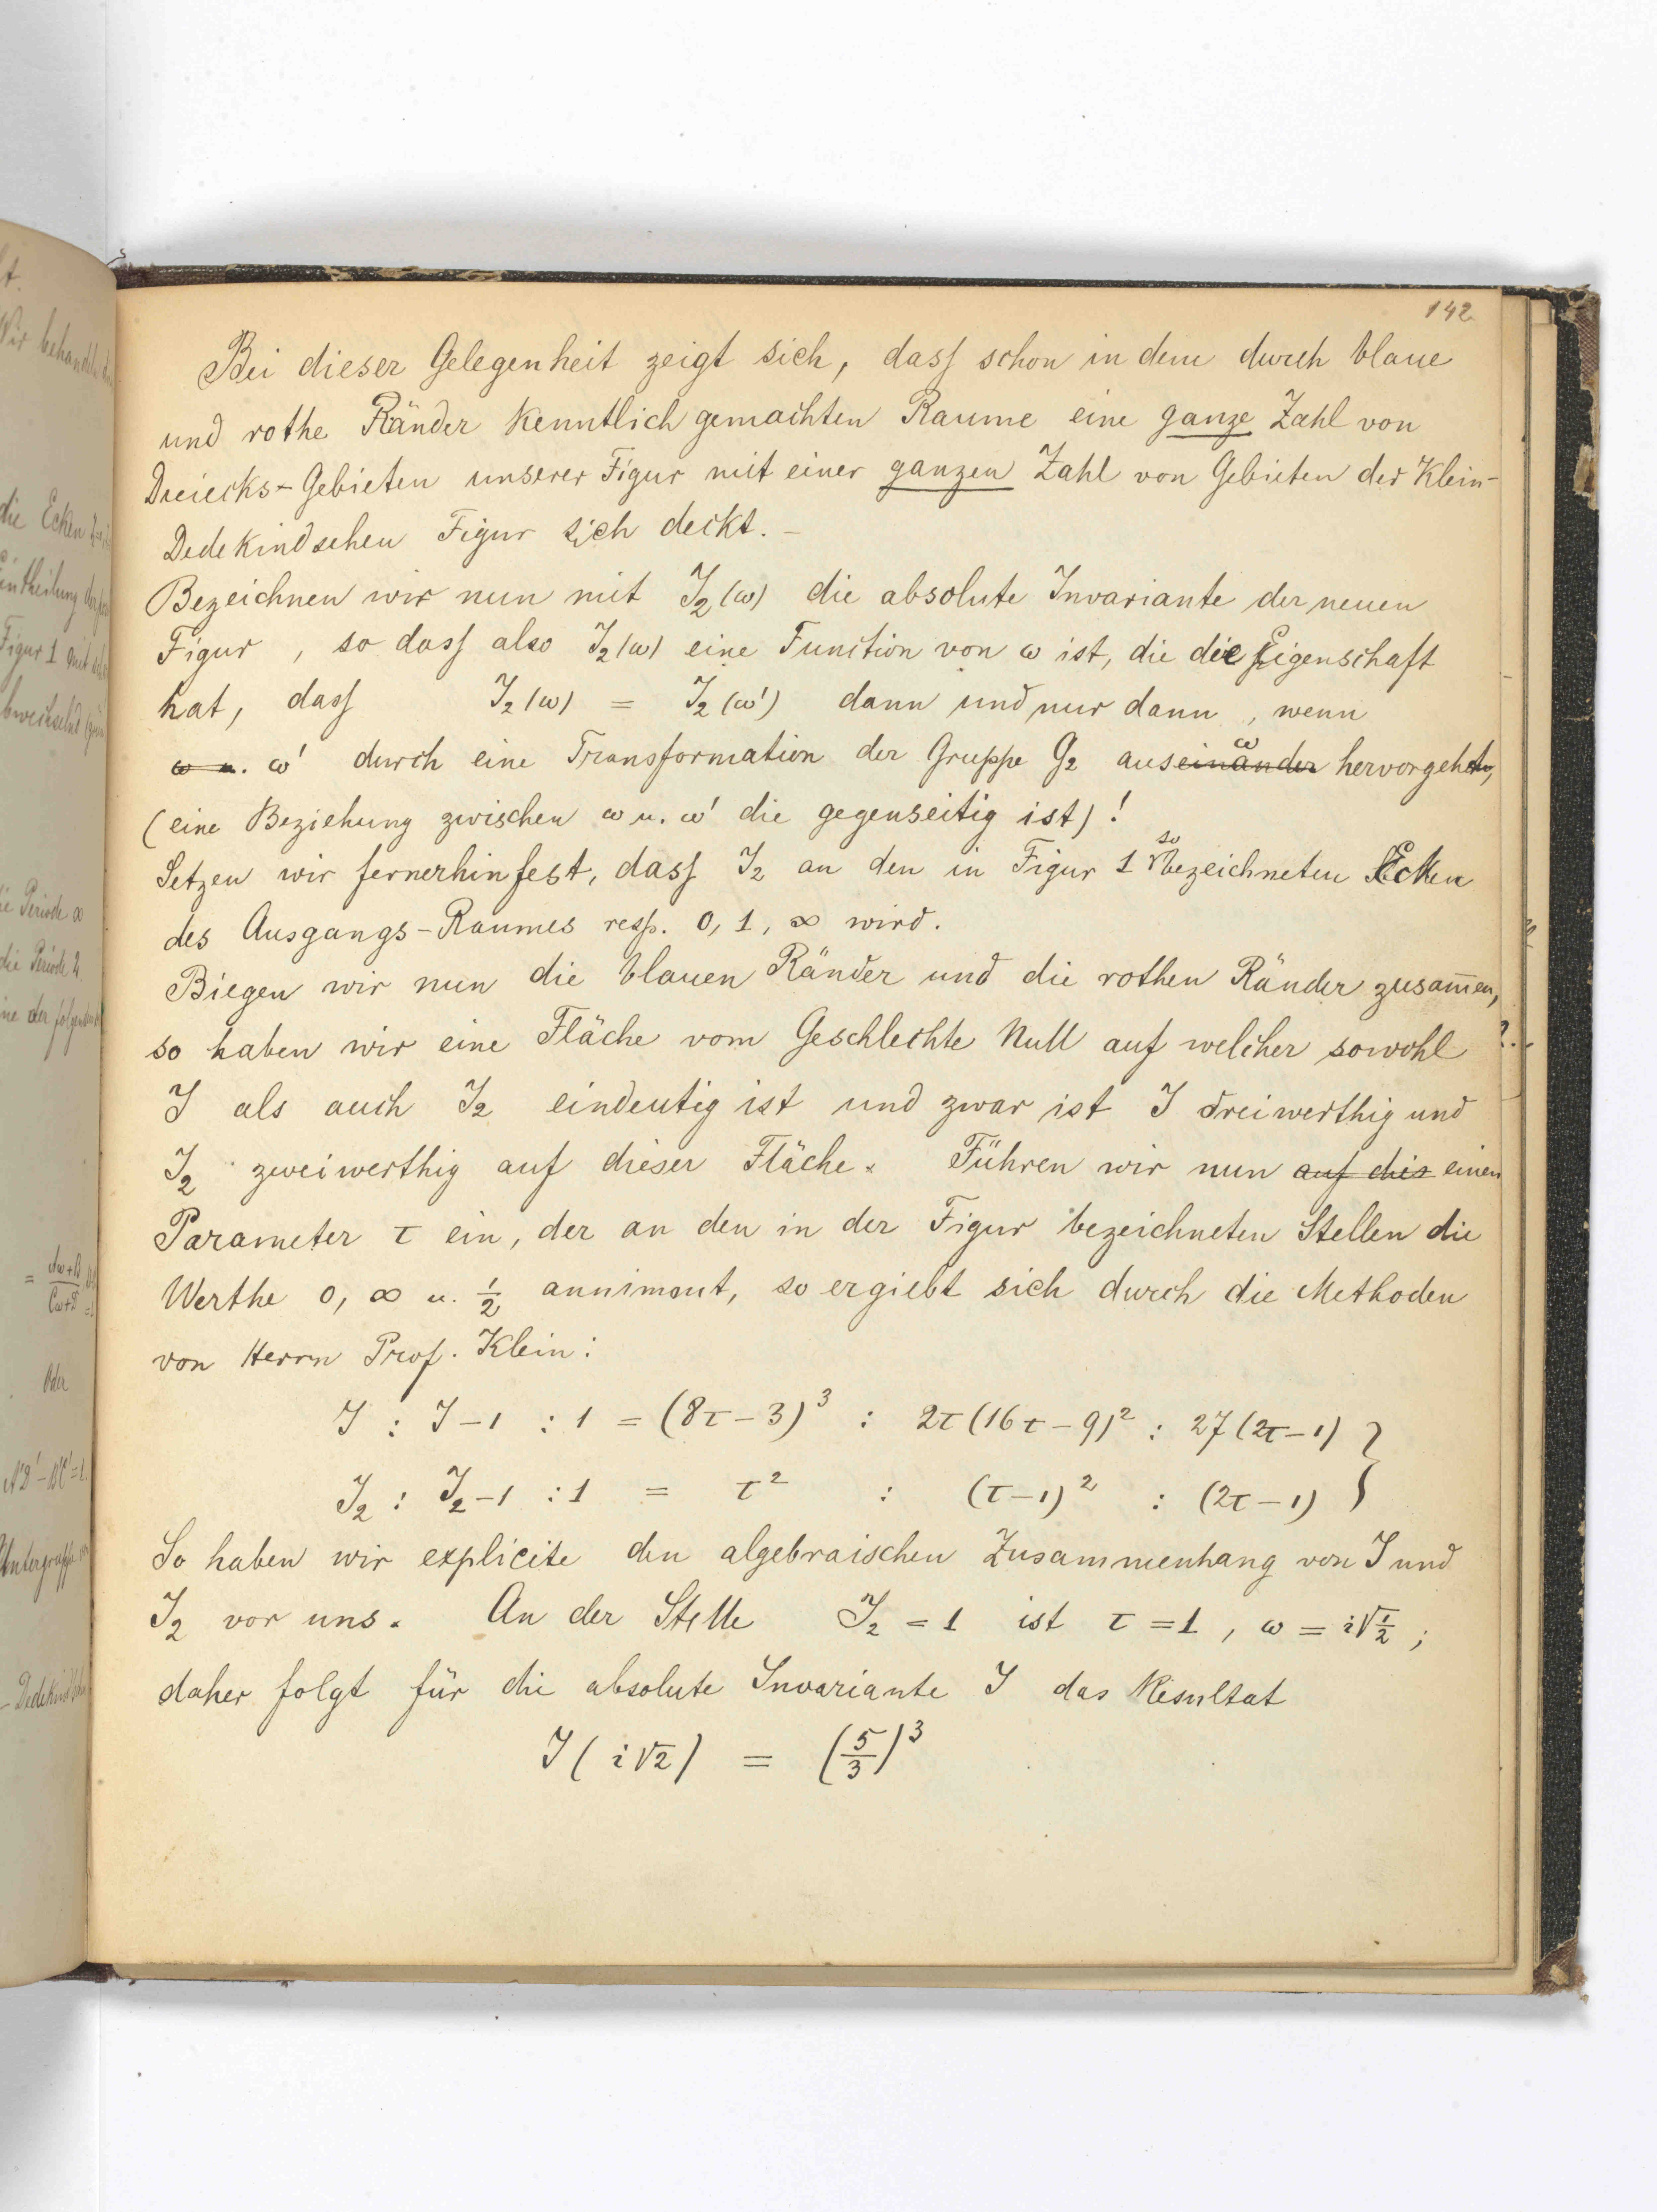 142
Bei dieser Gelegenheit zeigt sich, dass schon in dem durch blaue
und rothe Ränder kenntlich gemachten Raume eine ganze Zahl von
Dreiecks-Gebieten unserer Figur mit einer ganzen Zahl von Gebieten der Klein-
Dedekindschen Figur sich deckt. –
Bezeichnen wir nun mit J₂(ω) die absolute Invariante der neuen
Figur, so dass also J₂(ω) eine Function von ω ist, die die Eigenschaft
hat, dass J₂(ω) = J₂(ω') dann und nur dann, wenn
ω u. ω' durch eine Transformation der Gruppe G₂ auseinander ω hervorgehen,
(eine Beziehung zwischen ω u. ω' die gegenseitig ist)!
Setzen wir fernerhin fest, dass J₂ an den in Figur 1 so bezeichneten Ecken
des Ausgangs-Raumes resp. 0, 1, ∞ wird.
Biegen wir nun die blauen Ränder und die rothen Ränder zusam̄en,
so haben wir eine Fläche vom Geschlechte Null auf welcher sowohl
J als auch J₂ eindeutig ist und zwar ist J dreiwerthig und
J₂ zweiwerthig auf dieser Fläche. Führen wir nun auf dies einen
Parameter τ ein, der an den in der Figur bezeichneten Stellen die
Werthe 0, ∞ u. 1/2 annimmt, so ergiebt sich durch die Methoden
von Herrn Prof. Klein:
J : J-1 : 1 = (8τ-3)³ : 2τ(16τ-9)² : 27(2τ-1) }
J₂ : J₂-1 : 1 = τ² : (τ-1)² : (2τ-1) }
So haben wir explicite den algebraischen Zusammenhang von J und
J₂ vor uns. An der Stelle J₂ = 1 ist τ = 1, ω = i√1/2;
daher folgt für die absolute Invariante J das Resultat
J(i√2) = (5/3)³